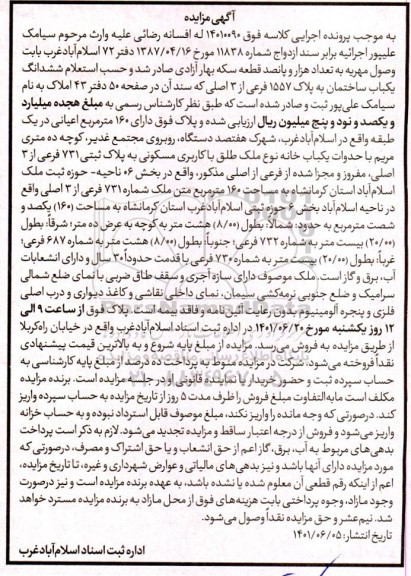 آگهی مزایده
به موجب پرونده اجرایی کلاسه فوق ۱۴۰۱۰۰۹۰ له افسانه رضائی علیه وارث مرحوم سیامک
علیپور اجرائیه برابر سند ازدواج شماره ۱۱۸۳۸ مورخ ۱۳۸۷/۰۴/۱۶ دفتر ۷۲ اسلام‌آبادغرب بابت
وصول مهریه به تعداد هزار و پانصد قطعه سکه بهار آزادی صادر شد و حسب استعلام ششدانگ
یکباب ساختمان به پلاک ۱۵۵۷ فرعی از ۳ اصلی که سند آن در صفحه ۵۰ دفتر ۴۳ املاک به نام
سیامک علی‌پور ثبت و صادر شده است که طبق نظر کارشناس رسمی به مبلغ هجده میلیارد
و یکصد و نود و پنج میلیون ریال ارزیابی شده و پلاک فوق دارای ۱۶۰ مترمربع اعیانی در یک
طبقه واقع در اسلام‌آبادغرب، شهرک هفتصد دستگاه، روبروی مجتمع غدیر، کوچه ده متری
مریم با حدوات یکباب خانه نوع ملک طلق با کاربری مسکونی به پلاک ثبتی ۷۳۱ فرعی از ۳
اصلی، مفروز و مجزا شده از فرعی از اصلی مذکور، واقع در بخش ۰۶ ناحیه- حوزه ثبت ملک
اسلام‌آباد استان کرمانشاه به مساحت ۱۶۰ مترمربع متن ملک شماره ۷۳۱ فرعی از ۳ اصلی واقع
در ناحیه اسلام‌آباد بخش ۶ حوزه ثبتی اسلام‌آبادغرب استان کرمانشاه به مساحت (۱۶۰) یکصد و
شصت مترمربع به حدود: شمالاً: بطول (۸/۰۰) هشت متر به کوچه به عرض ده متر؛ شرقاً: بطول
(۲۰/۰۰) بیست متر به شماره ۷۳۲ فرعی؛ جنوباً: بطول (۸/۰۰) هشت متر به شماره ۶۸۷ فرعی؛
غرباً: بطول (۲۰/۰۰) بیست متر به شماره ۷۳۰ فرعی با قدمت حدوداً ۳۰ سال و دارای انشعابات
آب، برق و گاز است. ملک موصوف دارای سازه آجری و سقف طاق ضربی با نمای ضلع شمالی
سرامیک و ضلع جنوبی نرمه‌کشی سیمان، نمای داخلی نقاشی و کاغذ دیواری و درب اصلی
فلزی و پنجره آلومینیوم بدون رعایت آئین نامه و فاقد بیمه است. پلاک فوق از ساعت ۹ الی
۱۲ روز یکشنبه مورخ ۱۴۰۱/۰۶/۲۰ در اداره ثبت اسناد اسلام‌آبادغرب واقع در خیابان راه‌کربلا
از طریق مزایده به فروش می‌رسد. مزایده از مبلغ پایه شروع و به بالاترین قیمت پیشنهادی
نقداً فروخته می‌شود؛ شرکت در مزایده منوط به پرداخت ده درصد از مبلغ پایه کارشناسی به
حساب سپرده ثبت و حضور خریدار یا نماینده قانونی او در جلسه مزایده است. برنده مزایده
مکلف است مابه‌التفاوت مبلغ فروش را ظرف مدت ۵ روز از تاریخ مزایده به حساب سپرده واریز
کند. درصورتی که وجه مانده را واریز نکند، مبلغ موصوف قابل استرداد نبوده و به حساب خزانه
واریز می‌شود و فروش از درجه اعتبار ساقط و مزایده تجدید می‌شود. لازم به ذکر است پرداخت
بدهی‌های مربوط به آب، برق، گاز اعم از حق انشعاب و یا حق اشتراک و مصرف، درصورتی که
مورد مزایده دارای آنها باشد و نیز بدهی های مالیاتی و عوارض شهرداری و غیره، تا تاریخ مزایده،
اعم از اینکه رقم قطعی آن معلوم شده یا نشده باشد، به عهده برنده مزایده است و نیز درصورت
وجود مازاد، وجوه پرداختی بابت هزینه‌های فوق از محل مازاد به برنده مزایده مسترد خواهد
شد. نیم‌عشر و حق مزایده نقداً وصول می‌شود.
تاریخ انتشار: ۱۴۰۱/۰۶/۰۵
اداره ثبت اسناد اسلام‌آبادغرب